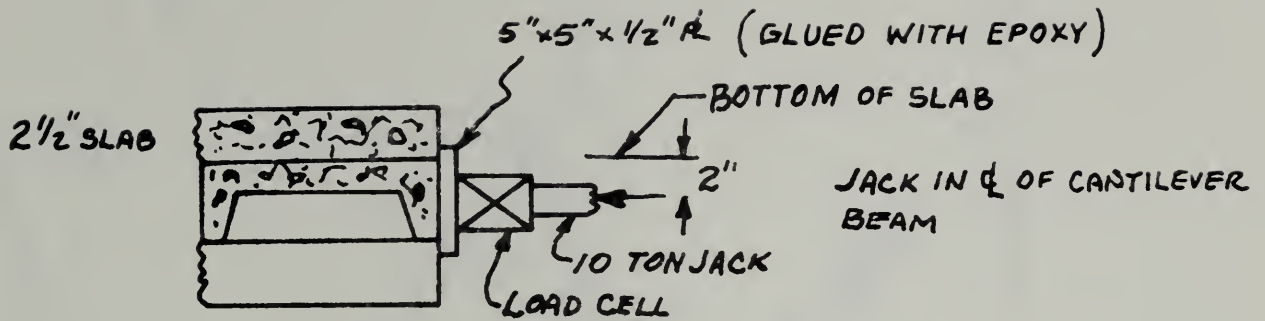 5"x5"x1/2" ⅊ (GLUED WITH EPOXY)
BOTTOM OF SLAB
2 1/2" SLAB
2"
JACK IN ℄ OF CANTILEVER
BEAM
10 TON JACK
LOAD CELL